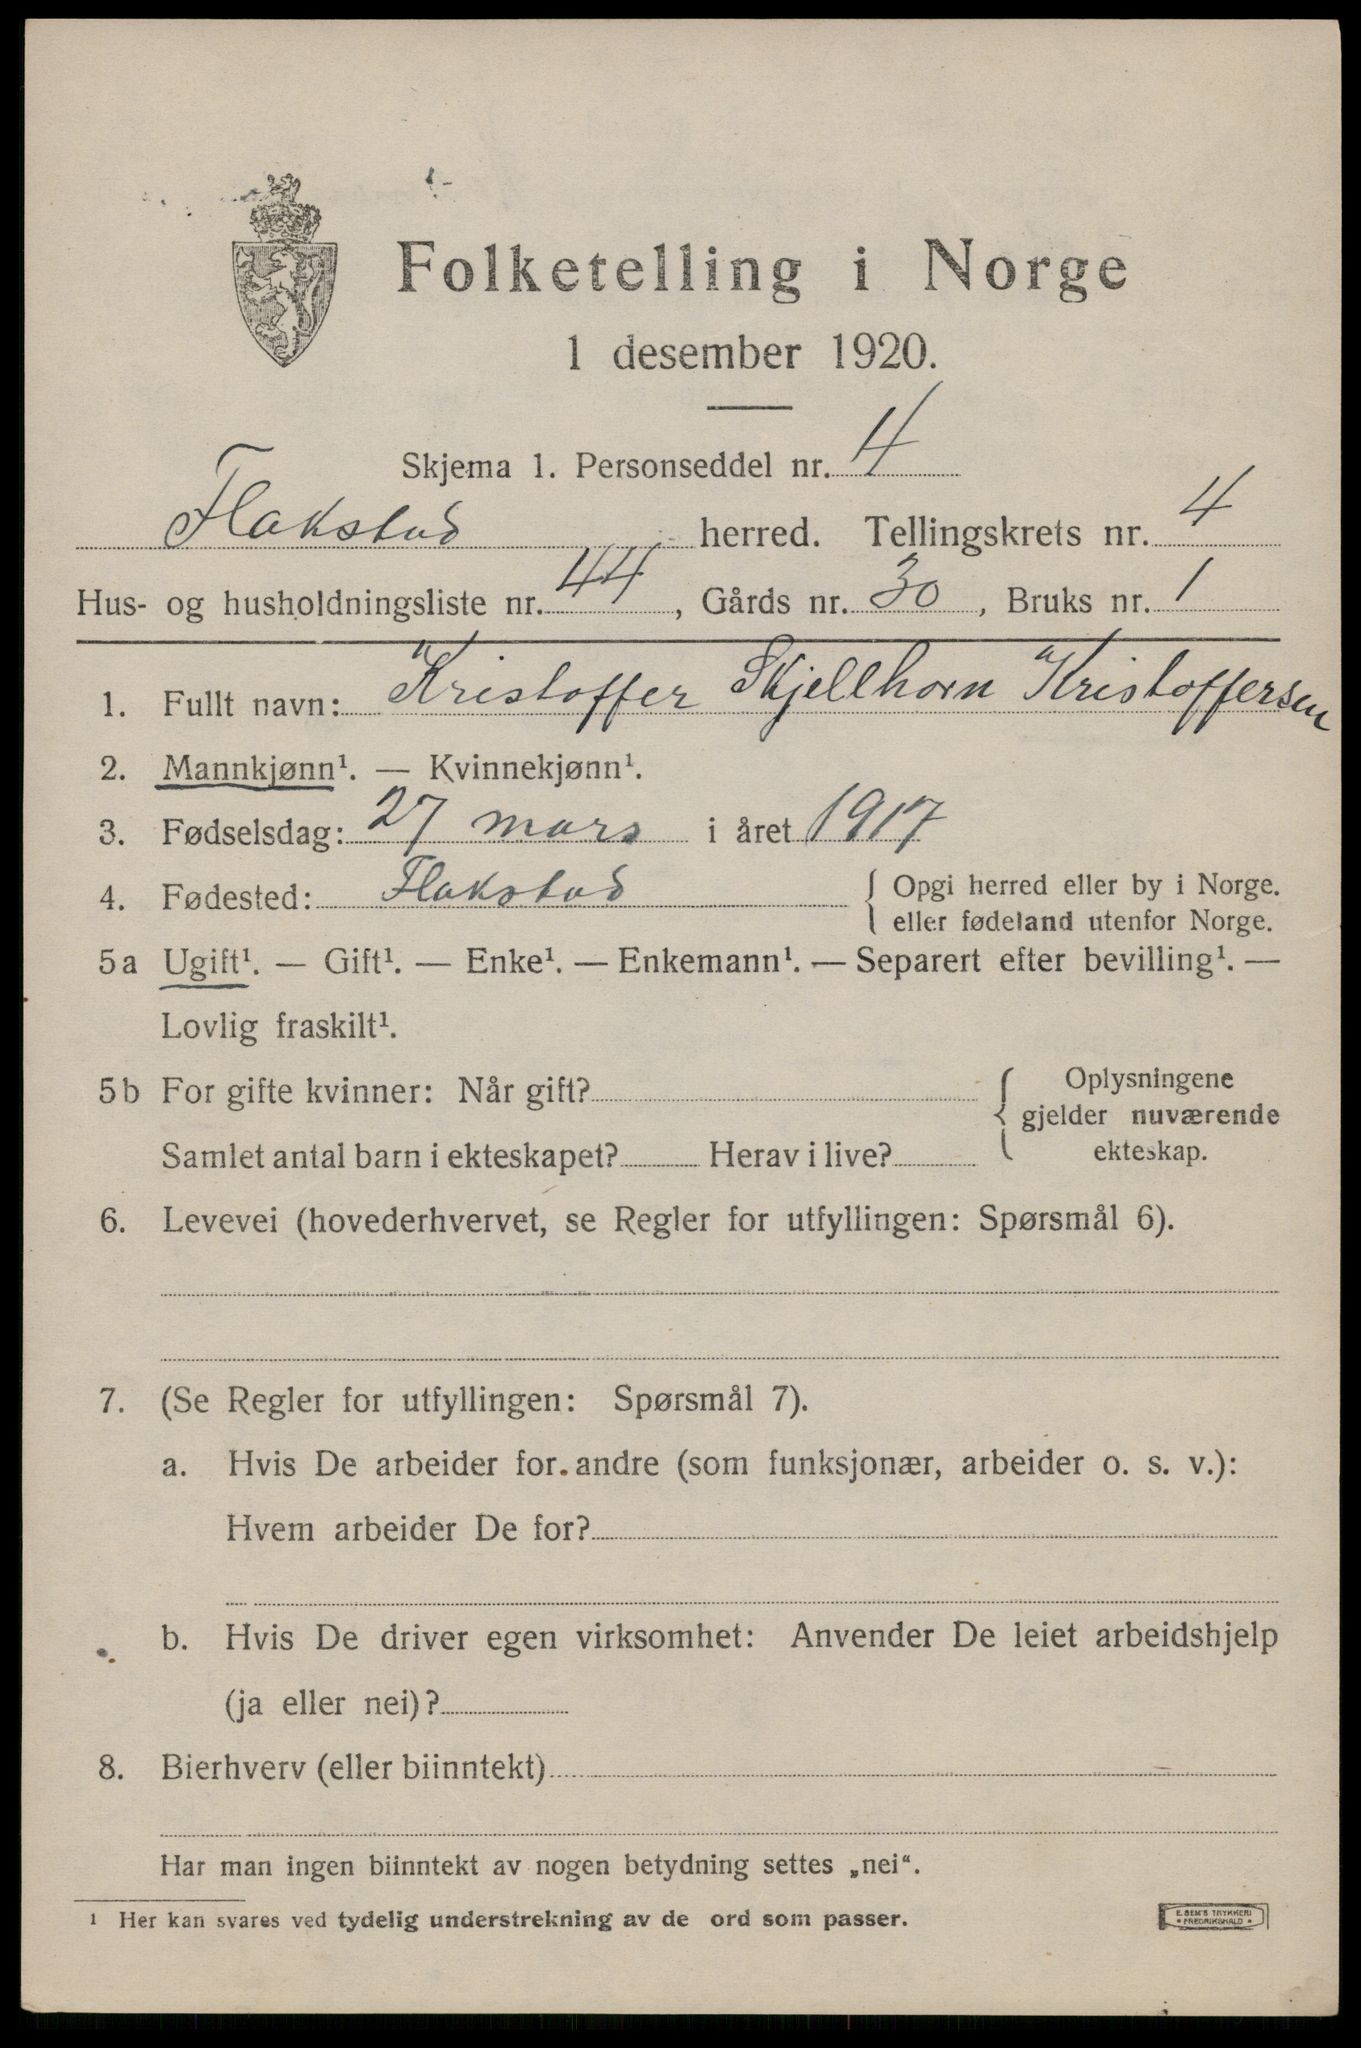 Folketelling i Norge
1 desember 1920.
Skjema 1. Personseddel nr. 4
Flakstad herred. Tellingskrets nr. 4
Hus- og husholdningsliste nr. 44, Gårds nr. 30, Bruks nr. 1
1. Fullt navn: Kristoffer Skjellhorn Kristoffersen
2. Mannkjønn¹. — Kvinnekjønn¹.
3. Fødselsdag: 27 mars i året 1917
4. Fødested: Flakstad { Opgi herred eller by i Norge.
eller fødeland utenfor Norge.
5a Ugift¹. — Gift¹. — Enke¹. — Enkemann¹. — Separert efter bevilling¹. —
Lovlig fraskilt¹.
5b For gifte kvinner: Når gift? { Oplysningene
gjelder nuværende
Samlet antal barn i ekteskapet? Herav i live? ekteskap.
6. Levevei (hovederhvervet, se Regler for utfyllingen: Spørsmål 6).
7. (Se Regler for utfyllingen: Spørsmål 7).
a. Hvis De arbeider for andre (som funksjonær, arbeider o. s. v.):
Hvem arbeider De for?
b. Hvis De driver egen virksomhet: Anvender De leiet arbeidshjelp
(ja eller nei)?
8. Bierhverv (eller biinntekt)
Har man ingen biinntekt av nogen betydning settes „nei“.
¹ Her kan svares ved tydelig understrekning av de ord som passer.
E. SEM'S TRYKKERI
* FREDRIKSHALD *